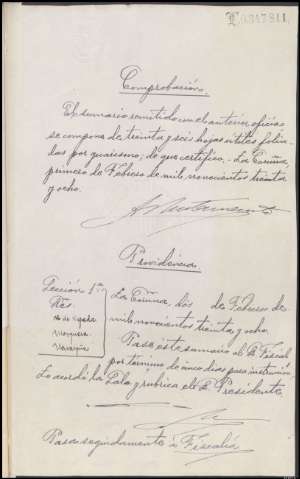 Comprobación.
El sumario remitido con el anterior oficio
se compone de treinta y seis hojas útiles folia-
das por guarismo; de que certifico. - La Coruña,
primero de Febrero de mil novecientos treinta
y ocho.
Providencia
Sección 1ª
La Coruña, dos de Febrero de
mil novecientos treinta y ocho.
Pase este sumario al Sr. Fiscal
por término de once días para instrucción.
Lo acordó la Sala y rubrica el Sr. Presidente
Pasa seguidamente á Fiscalía